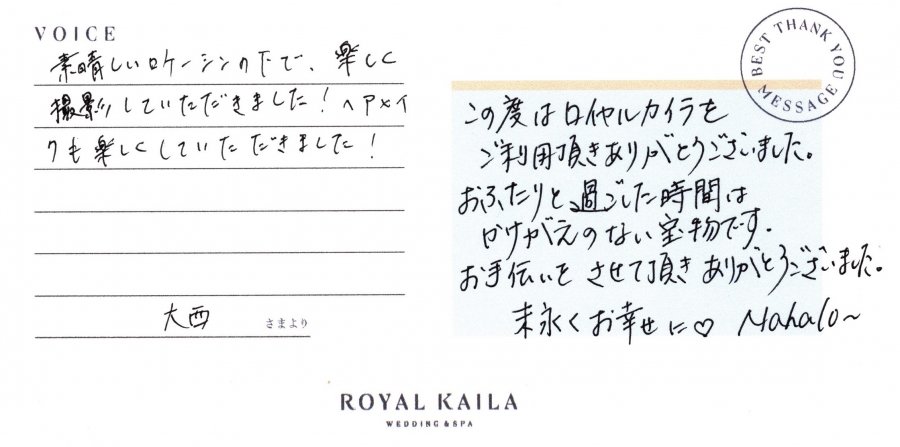 VOICE
素晴しいロケーシンの下で、楽しく
撮影していただきました！ヘアメイ
クも楽しくしていただきました！
大西
さまより
BEST THANK YOU MESSAGE
この度はロイヤルカイラを
ご利用頂きありがとうございました。
おふたりと過ごした時間は
かけがえのない宝物です。
お手伝いをさせて頂きありがとうございました。
末永くお幸せに♡ Mahalo~
ROYAL KAILA
WEDDING & SPA